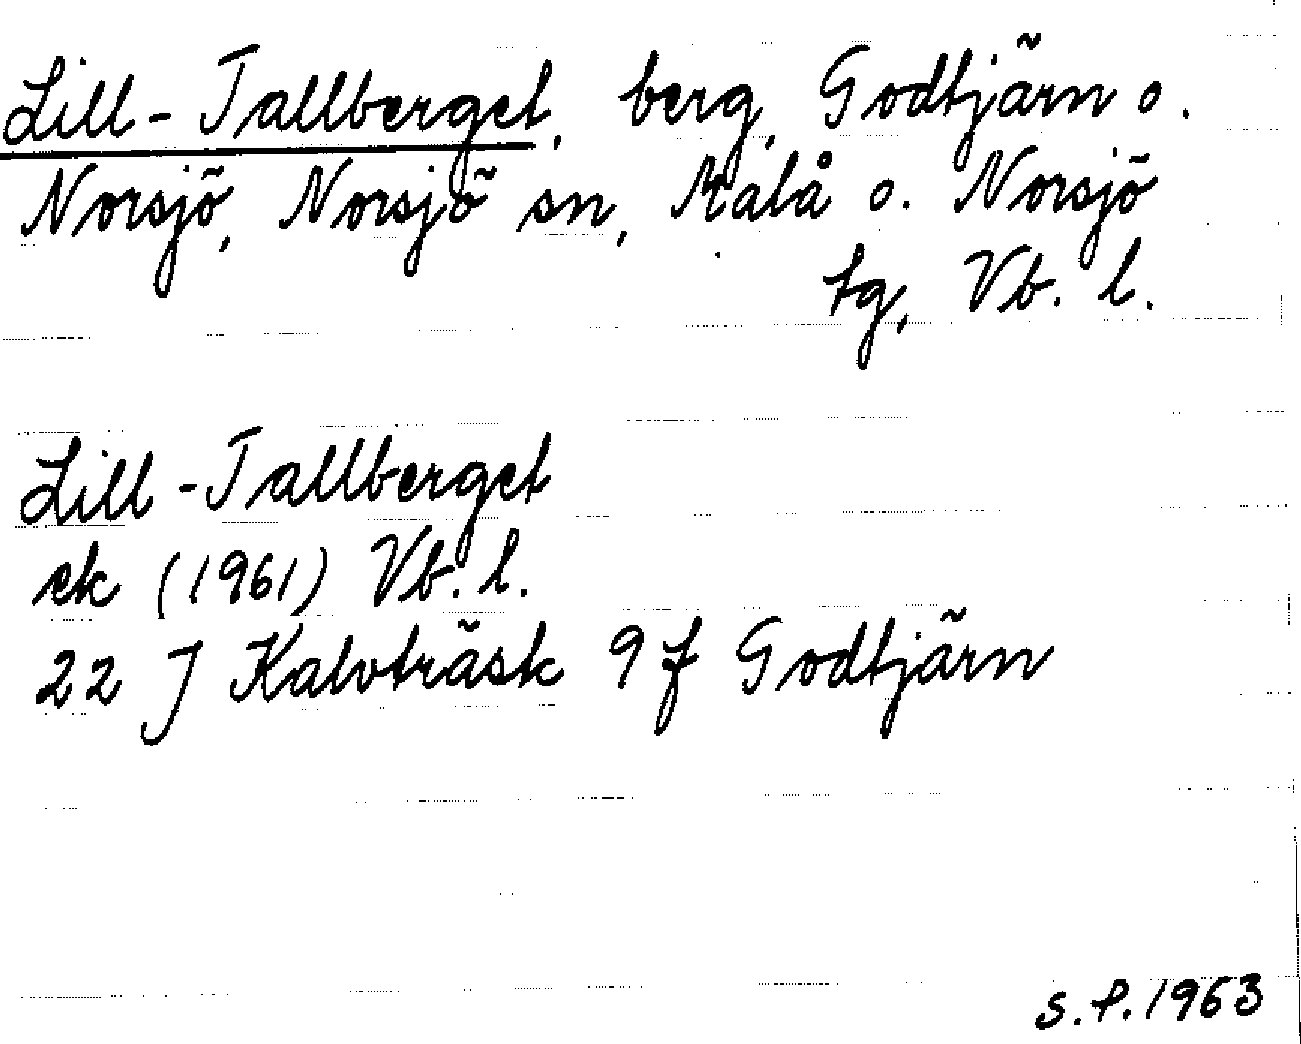 Lill-Tallberget, berg, Godtjärn o.
Norsjö, Norsjö sn, Malå o. Norsjö
tg, Vb. l.
Lill-Tallberget
ek (1961) Vb. l.
22 J Kalvträsk 9 f Godtjärn
S.P. 1963